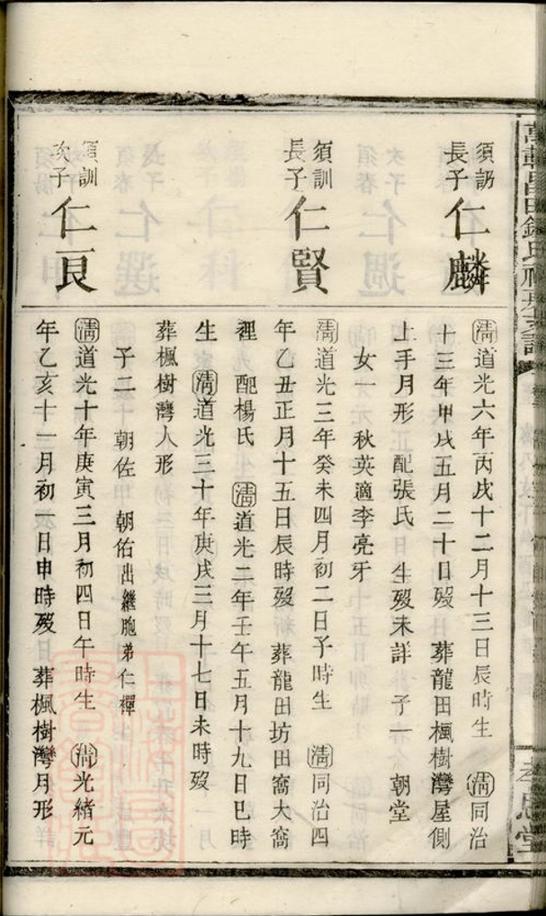 須訒
長子
仁麟
清道光六年丙戌十二月十三日辰時生 清同治
十三年甲戌五月二十日歿 葬龍田楓樹灣屋側
上手月形 配張氏 生歿未詳 子一 朝堂
女一 秋英適李亮牙
須訓
長子
仁賢
清道光三年癸未四月初二日子時生 清同治四
年乙丑正月十五日辰時歿 葬龍田坊田窩大窩
裡 配楊氏 清道光二年壬午五月十九日巳時
生 清道光三十年庚戌三月十七日未時歿
葬楓樹灣人形
子二 朝佐 朝佑出繼胞弟仁禪
須訓
次子
仁良
清道光十年庚寅三月初四日午時生 清光緒元
年乙亥十一月初一日申時歿 葬楓樹灣月形
孝思堂